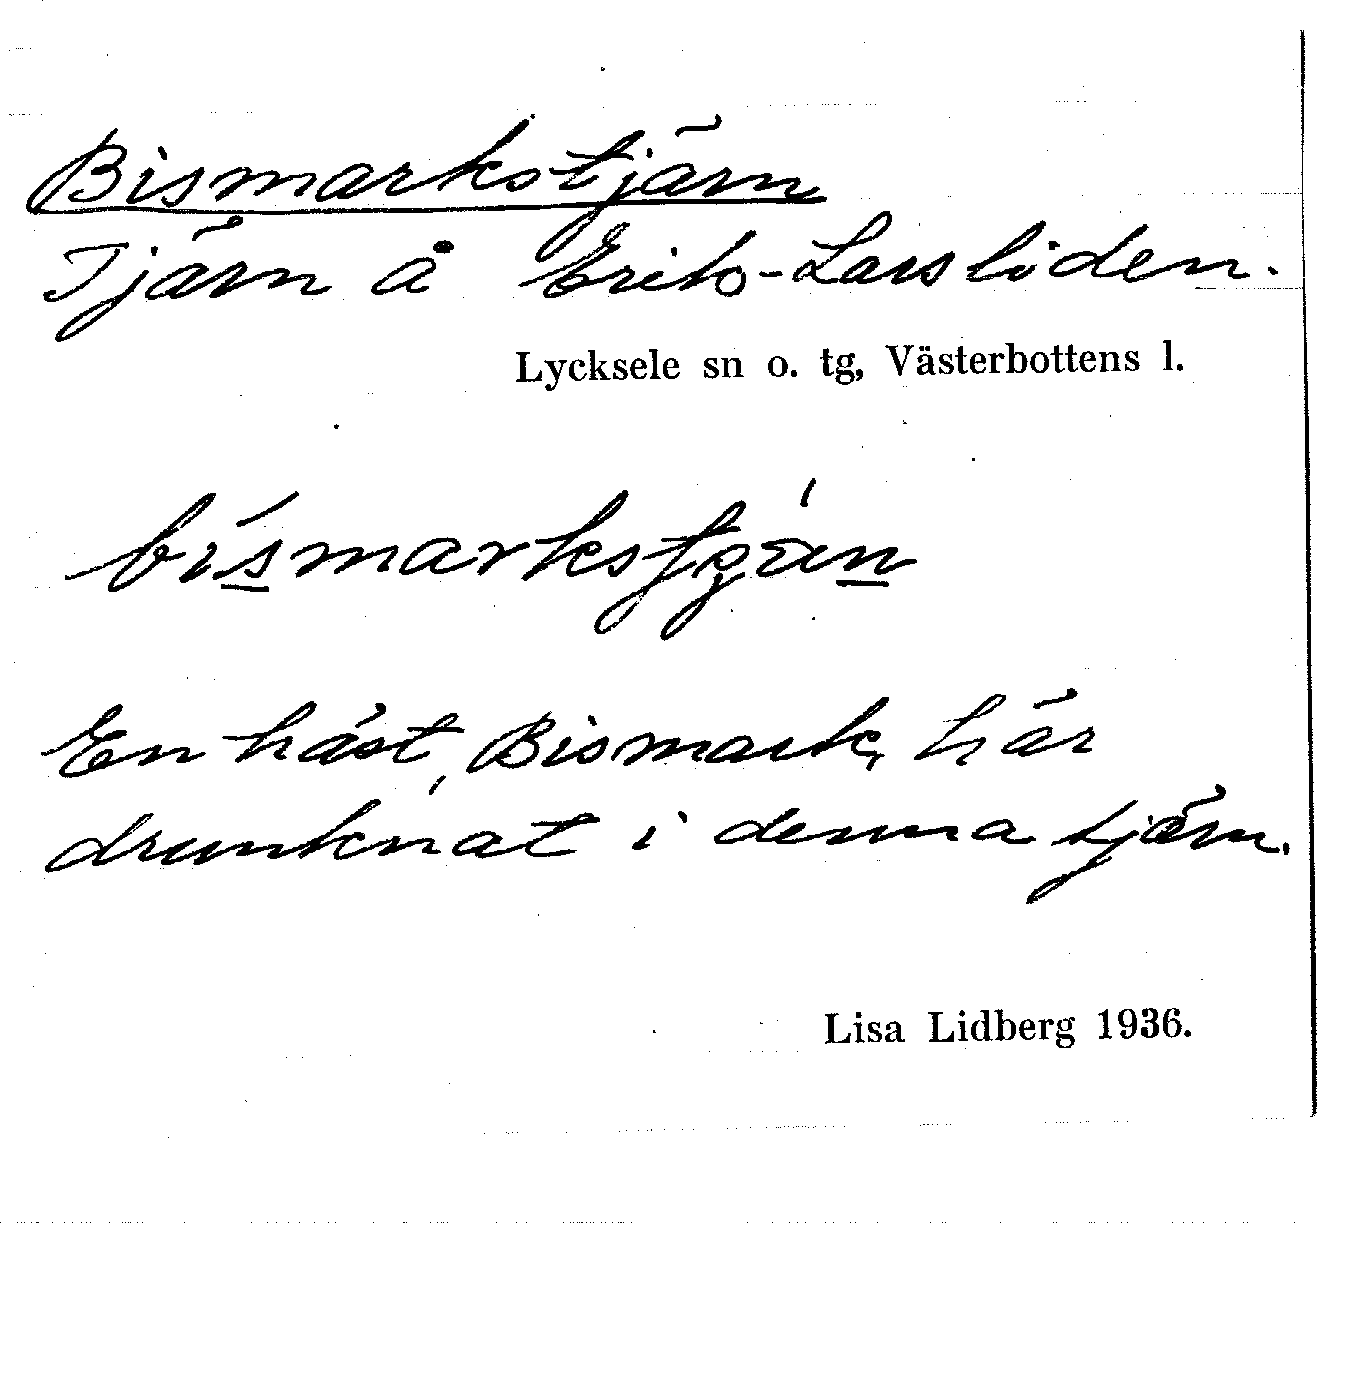 Bismarkstjärn
Tjärn å Eriks-Larsliden.
Lycksele sn o. tg, Västerbottens l.
En häst, Bismark, här
drunknat i denna tjärn.
Lisa Lidberg 1936.